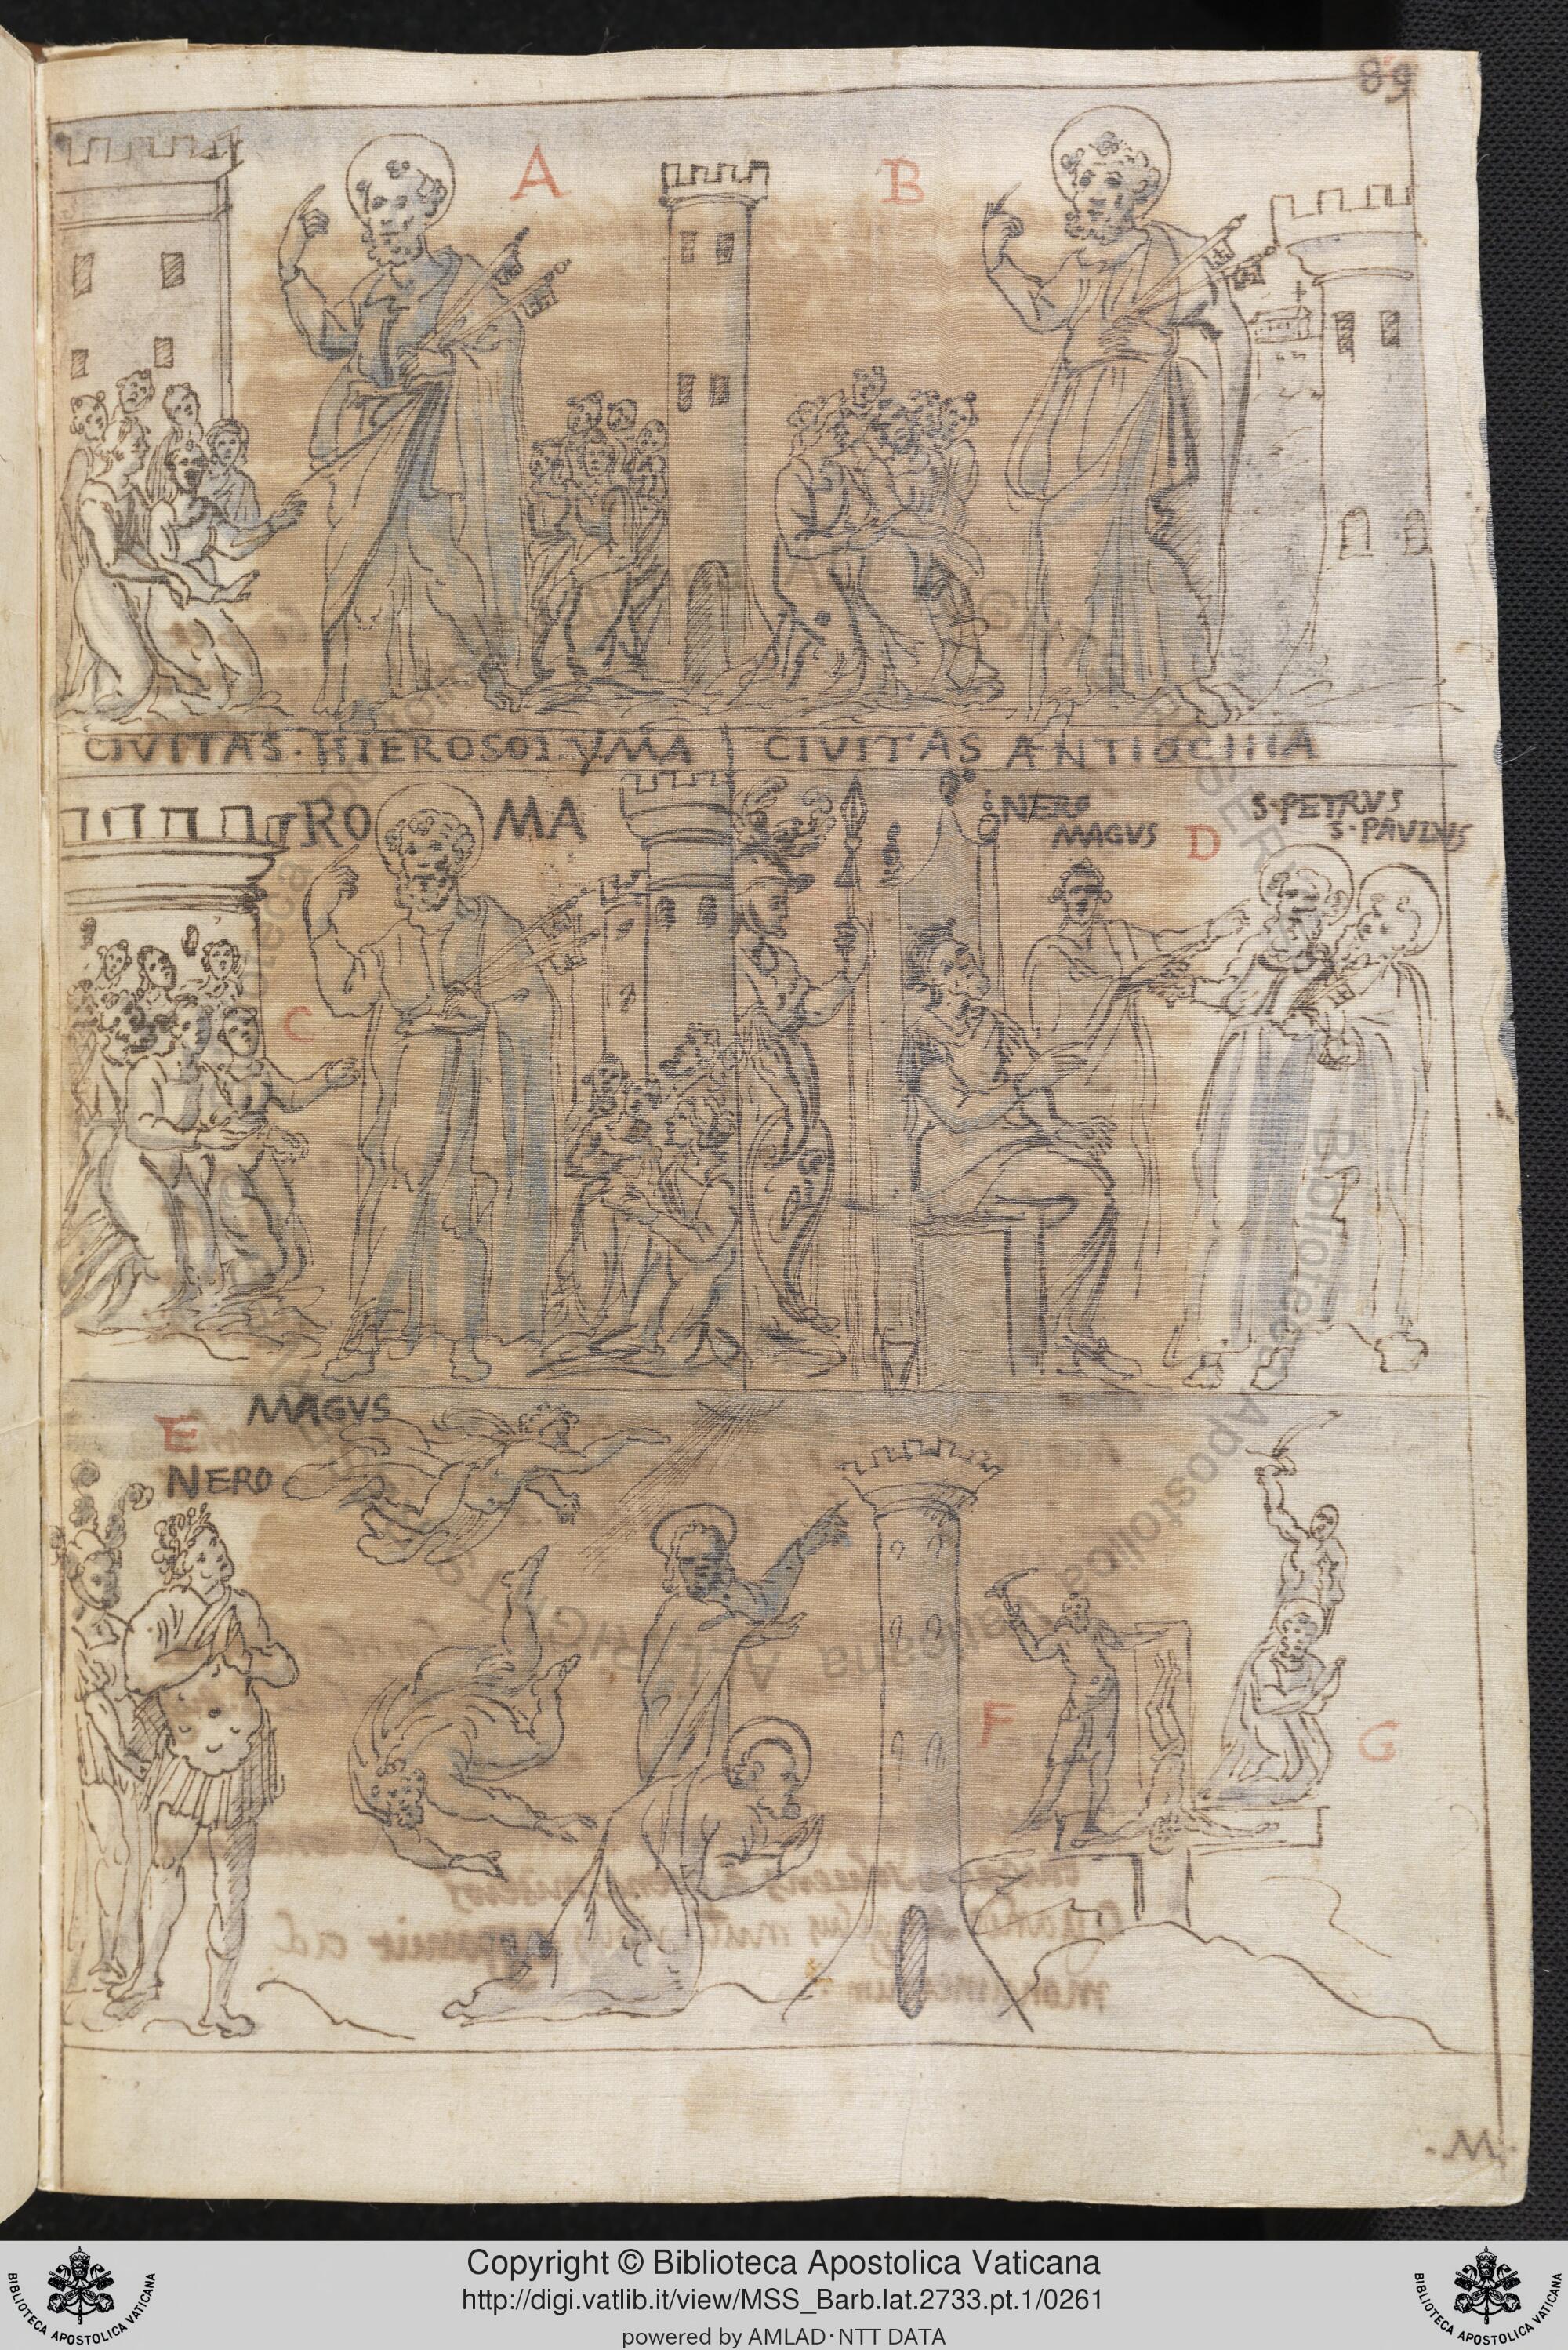 89
A
B
CIVITAS · HIEROSOLYMA
CIVITAS ANTIOCHIA
ROMA
NERO
MAGVS
S·PETRVS
S·PAVLVS
D
C
MAGVS
E
NERO
F
G
·M·
Copyright © Biblioteca Apostolica Vaticana
http://digi.vatlib.it/view/MSS_Barb.lat.2733.pt.1/0261
powered by AMLAD·NTT DATA
BIBLIOTECA APOSTOLICA VATICANA
BIBLIOTECA APOSTOLICA VATICANA